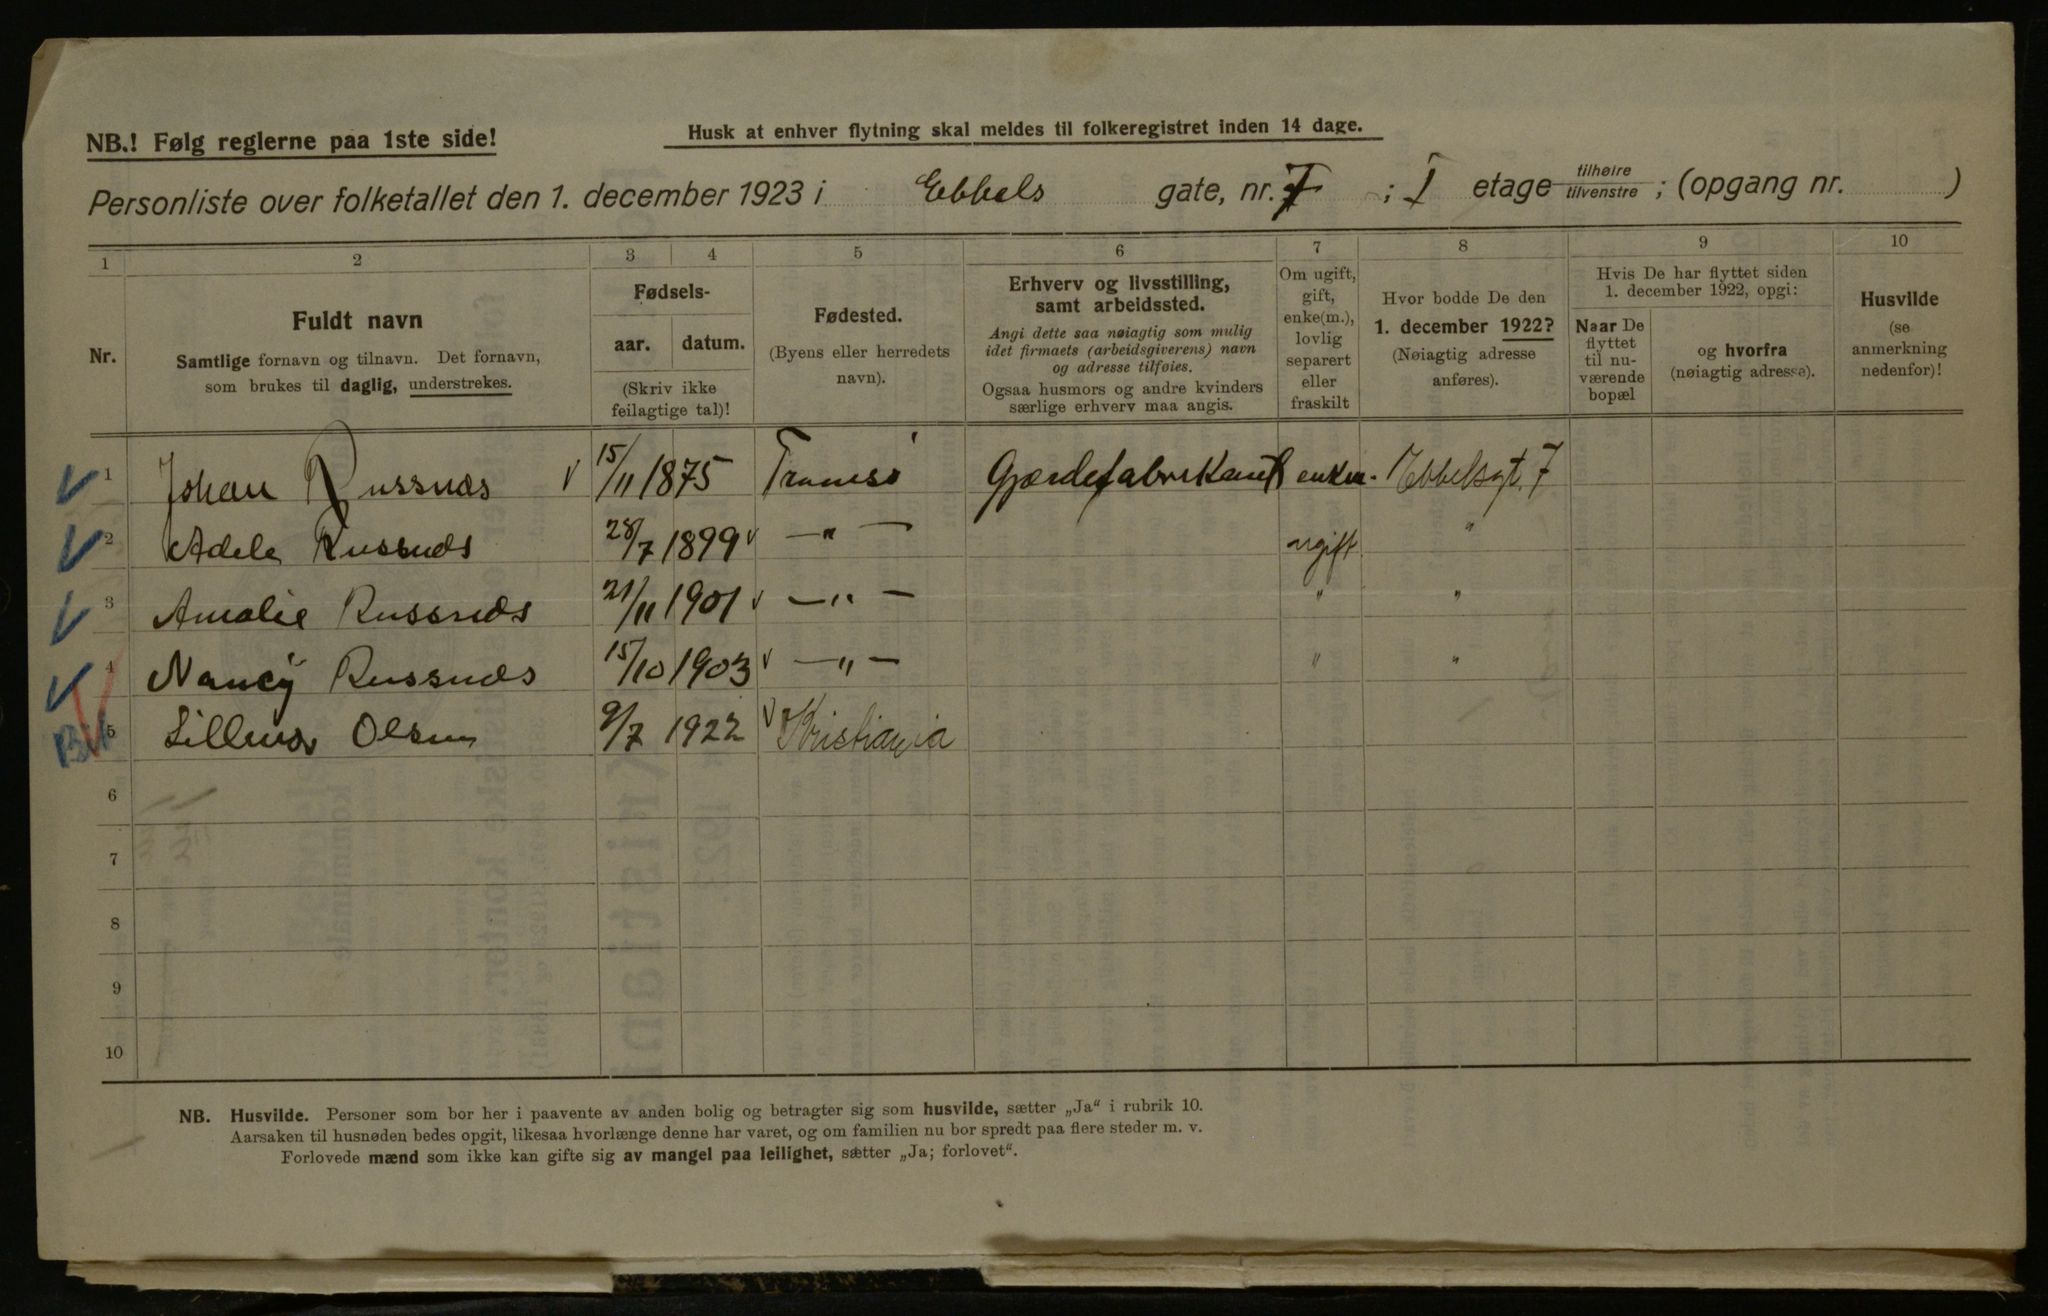 NB.! Følg reglerne paa 1ste side!
Husk at enhver flytning skal meldes til folkeregistret inden 14 dage.
Personliste over folketallet den 1. december 1923 i Ebbels gate, nr. 7 ; I etage tilhøire tilvenstre ; (opgang nr. )
1 2 3 4 5 6 7 8 9 10
Nr.
Fuldt navn
Samtlige fornavn og tilnavn. Det fornavn,
som brukes til daglig, understrekes.
Fødsels-
aar. datum.
(Skriv ikke
feilagtige tal)!
Fødested.
(Byens eller herredets
navn).
Erhverv og livsstilling,
samt arbeidssted.
Angi dette saa nøiagtig som mulig
idet firmaets (arbeidsgiverens) navn
og adresse tilføies.
Ogsaa husmors og andre kvinders
særlige erhverv maa angis.
Om ugift,
gift,
enke(m.),
lovlig
separert
eller
fraskilt
Hvor bodde De den
1. december 1922?
(Nøiagtig adresse
anføres).
Hvis De har flyttet siden
1. december 1922, opgi:
Naar De
flyttet
til nu-
værende
bopæl
og hvorfra
(nøiagtig adresse).
Husvilde
(se
anmerkning
nedenfor)!
1 Johan Russnæs 15/11 1875 Tromsö Gjærdefabrikant enkem. Ebbelsgt. 7
2 Adele Russnæs 28/7 1899 — " — ugift "
3 Amalie Russnæs 21/11 1901 — " — " "
4 Nancy Russnæs 15/10 1903 — " — " "
5 Lillemor Olsen 9/7 1922 Kristiania
6
7
8
9
10
NB. Husvilde. Personer som bor her i paavente av anden bolig og betragter sig som husvilde, sætter „Ja“ i rubrik 10.
Aarsaken til husnøden bedes opgit, likesaa hvorlænge denne har varet, og om familien nu bor spredt paa flere steder m. v.
Forlovede mænd som ikke kan gifte sig av mangel paa leilighet, sætter „Ja; forlovet“.